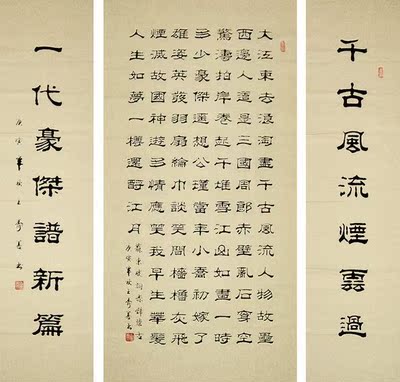 千古風流煙雲過
大江東去浪淘盡千古風流人物故壘
西邊人道是三國周郎赤壁亂石穿空
驚濤拍岸卷起千堆雪江山如畫一時
多少豪傑遙想公瑾當年小喬初嫁了
雄姿英發羽扇綸巾談笑間檣櫓灰飛
煙滅故國神遊多情應笑我早生華髮
人生如夢一樽還酹江月
東坡詞赤壁懷古
庚寅
一代豪傑譜新篇
庚寅